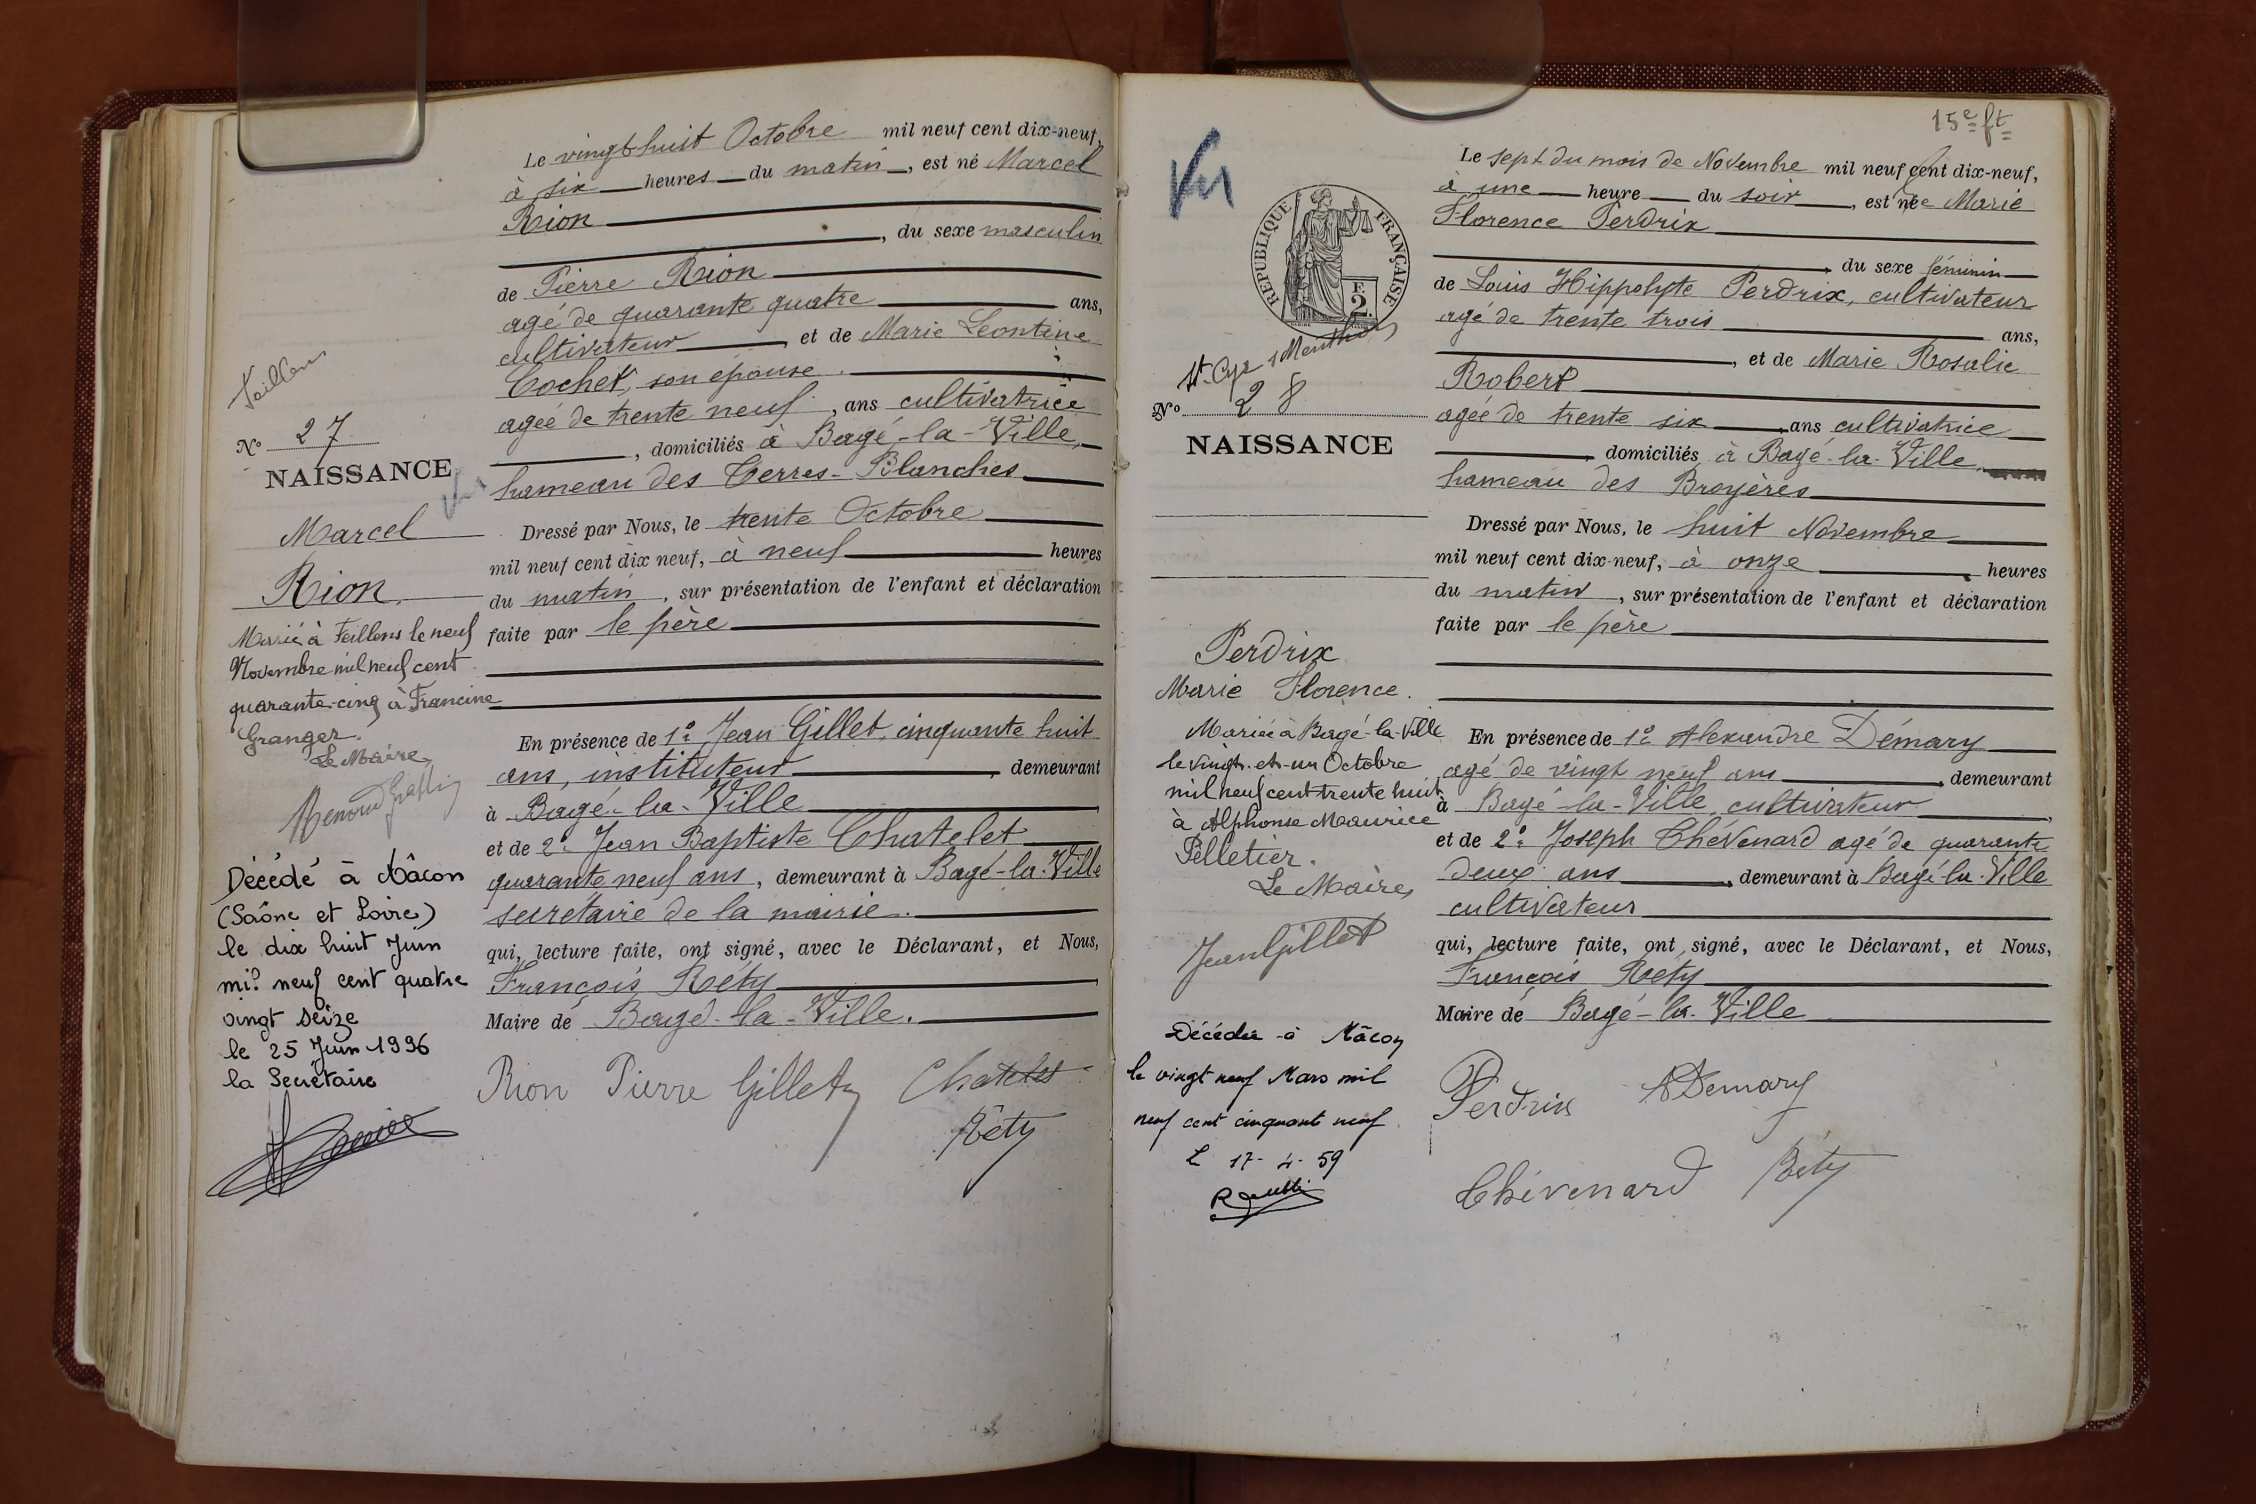 Le vingt huit Octobre mil neuf cent dix-neuf,
à six heures du matin, est né Marcel
Rion
, du sexe masculin
de Pierre Rion
agé de quarante quatre ans,
cultivateur, et de Marie Léontine
Cochet, son épouse.
agée de trente neuf, ans cultivatrice
, domiciliés à Bagé-la-Ville,
hameau des Terres-Blanches
Dressé par Nous, le trente Octobre
mil neuf cent dix neuf, à neuf heures
du matin, sur présentation de l'enfant et déclaration
faite par le père
En présence de 1º Jean Gillet, cinquante huit
ans, instituteur, demeurant
à Bagé-la-Ville,
et de 2º Jean Baptiste Chatelet
quarante neuf ans, demeurant à Bagé-la-Ville
secretaire de la mairie.
qui, lecture faite, ont signé, avec le Déclarant, et Nous,
François Réty
Maire de Bagé-la-Ville.
Rion Pierre Gillet Chatelet
Réty
Feillens
Nº 27
NAISSANCE
Vu
Marcel
Rion
Marié à Feillens le neuf
Novembre mil neuf cent
quarante-cinq à Francine
Granger.
Le Maire,
Décédé à Mâcon
(Saône et Loire)
le dix huit Juin
mil neuf cent quatre
vingt seize
le 25 Juin 1996
la Secrétaire
15e ft
Vu
REPUBLIQUE FRANÇAISE
F.
2.
St-Cyr s/Menthon
Nº 28
NAISSANCE
Perdrix
Marie Florence.
Mariée à Bagé-la-Ville
le vingt-et-un Octobre
mil neuf cent trente huit
à Alphonse Maurice
Pelletier.
Le Maire,
Jean Gillet
Décédée à Mâcon
le vingt neuf Mars mil
neuf cent cinquant neuf
L 17-4-59
Le sept du mois de Novembre mil neuf cent dix-neuf,
à une heure du soir, est née Marie
Florence Perdrix
, du sexe féminin
de Louis Hippolyte Perdrix, cultivateur
agé de trente trois ans,
, et de Marie Rosalie
Robert
agée de trente six, ans cultivatrice
, domiciliés à Bagé-la-Ville,
hameau des Broyères
Dressé par Nous, le huit Novembre
mil neuf cent dix-neuf, à onze heures
du matin, sur présentation de l'enfant et déclaration
faite par le père
En présence de 1º Alexandre Démary
agé de vingt neuf ans, demeurant
à Bagé-la-Ville, cultivateur,
et de 2º Joseph Chévenard agé de quarante
deux ans, demeurant à Bagé-la-Ville
cultivateur
qui, lecture faite, ont signé, avec le Déclarant, et Nous,
François Réty
Maire de Bagé-la-Ville
Perdrix A Demary
Chévenard Réty